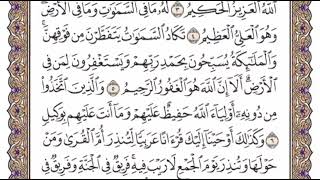 اللَّهُ الْعَزِيزُ الْحَكِيمُ ٣ لَهُ مَا فِي السَّمَاوَاتِ وَمَا فِي الْأَرْضِ
وَهُوَ الْعَلِيُّ الْعَظِيمُ ٤ تَكَادُ السَّمَاوَاتُ يَتَفَطَّرْنَ مِن فَوْقِهِنَّ
وَالْمَلَائِكَةُ يُسَبِّحُونَ بِحَمْدِ رَبِّهِمْ وَيَسْتَغْفِرُونَ لِمَن فِي
الْأَرْضِ أَلَا إِنَّ اللَّهَ هُوَ الْغَفُورُ الرَّحِيمُ ٥ وَالَّذِينَ اتَّخَذُوا
مِن دُونِهِ أَوْلِيَاءَ اللَّهُ حَفِيظٌ عَلَيْهِمْ وَمَا أَنتَ عَلَيْهِم بِوَكِيلٍ
٦ وَكَذَٰلِكَ أَوْحَيْنَا إِلَيْكَ قُرْآنًا عَرَبِيًّا لِّتُنذِرَ أُمَّ الْقُرَىٰ وَمَنْ
حَوْلَهَا وَتُنذِرَ يَوْمَ الْجَمْعِ لَا رَيْبَ فِيهِ فَرِيقٌ فِي الْجَنَّةِ وَفَرِيقٌ فِي